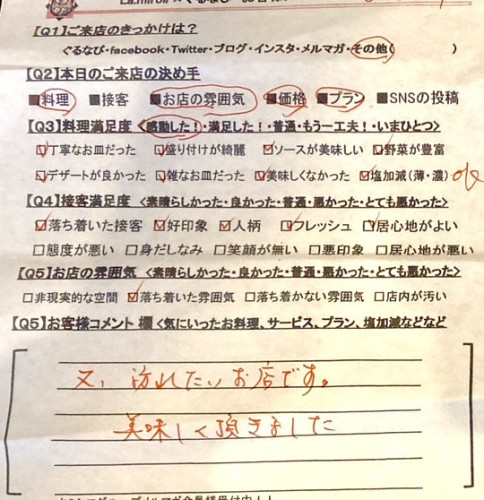 【Q1】ご来店のきっかけは？
ぐるなび・facebook・Twitter・ブログ・インスタ・メルマガ・その他(　　　　)
【Q2】本日のご来店の決め手
■料理 ■接客 ■お店の雰囲気 ■価格 ■プラン ■SNSの投稿
【Q3】料理満足度 <感動した！・満足した！・普通・もう一工夫！・いまひとつ>
☑丁寧なお皿だった ☑盛り付けが綺麗 ☑ソースが美味しい ☑野菜が豊富
☑デザートが良かった ☑雑なお皿だった ☑美味しくなかった ☑塩加減(薄・濃) ok
【Q4】接客満足度 <素晴らしかった・良かった・普通・悪かった・とても悪かった>
☑落ち着いた接客 ☑好印象 ☑人柄 ☑フレッシュ ☑居心地がよい
□態度が悪い □身だしなみ □笑顔が無い □悪印象 □居心地が悪い
【Q5】お店の雰囲気 <素晴らしかった・良かった・普通・悪かった・とても悪かった>
□非現実的な空間 ☑落ち着いた雰囲気 □落ち着かない雰囲気 □店内が汚い
【Q5】お客様コメント 欄 <気にいったお料理、サービス、プラン、塩加減などなど
又、訪れたいお店です。
美味しく頂きました